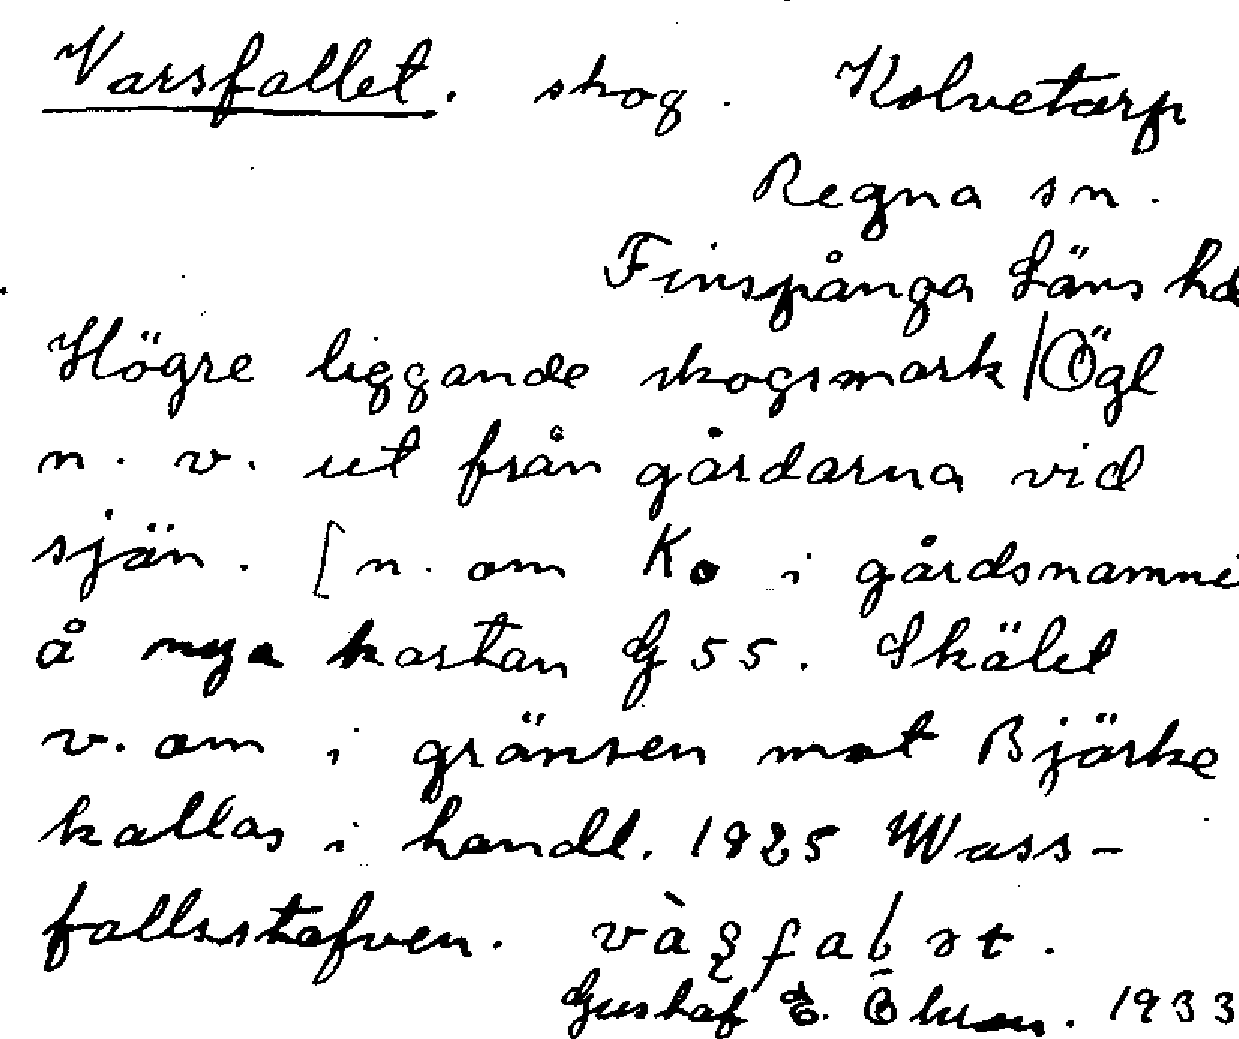 Varsfallet. skog. Kolvetorp
Regna sn.
Finspånga Läns hd
Högre liggande skogsmark / Ögl
n. v. ut från gårdarna vid
sjön. [n. om Ko i gårdsnamnet
å nya kartan G 55. Skälet
v. om i gränsen mot Björke
kallas i handl. 1825 Wass-
fallsstafven.
Gustaf E. 1933